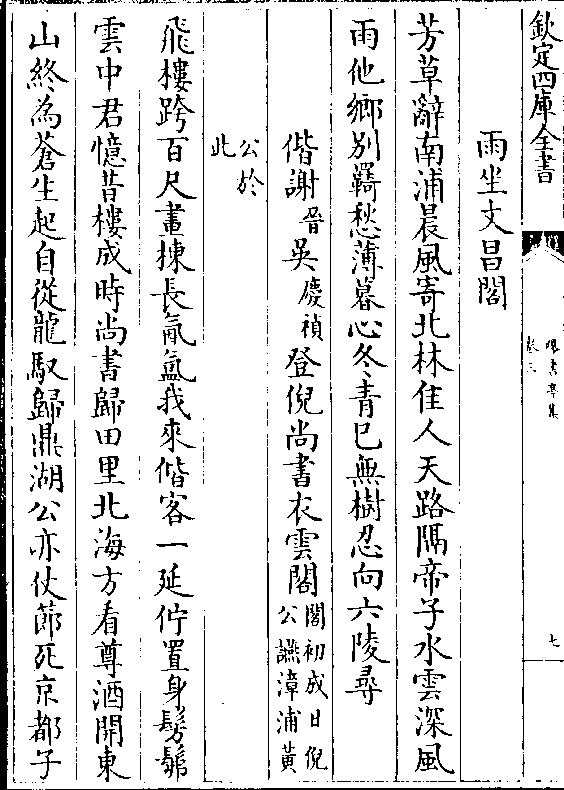 欽定四庫全書
曝書亭集
卷三
七
雨坐文昌閣
芳草辭南浦晨風寄北林佳人天路隔帝子水雲深風
雨他鄉別羇愁薄暮心冬青已無樹忍向六陵尋
偕謝晉吳慶禎登倪尚書衣雲閣閣初成日倪公讌漳浦黃
公於此
飛樓跨百尺畫棟長氤氳我來偕客一延佇置身髣髴
雲中君憶昔樓成時尚書歸田里北海方看尊酒開東
山終為蒼生起自從龍馭歸鼎湖公亦仗節死京都子